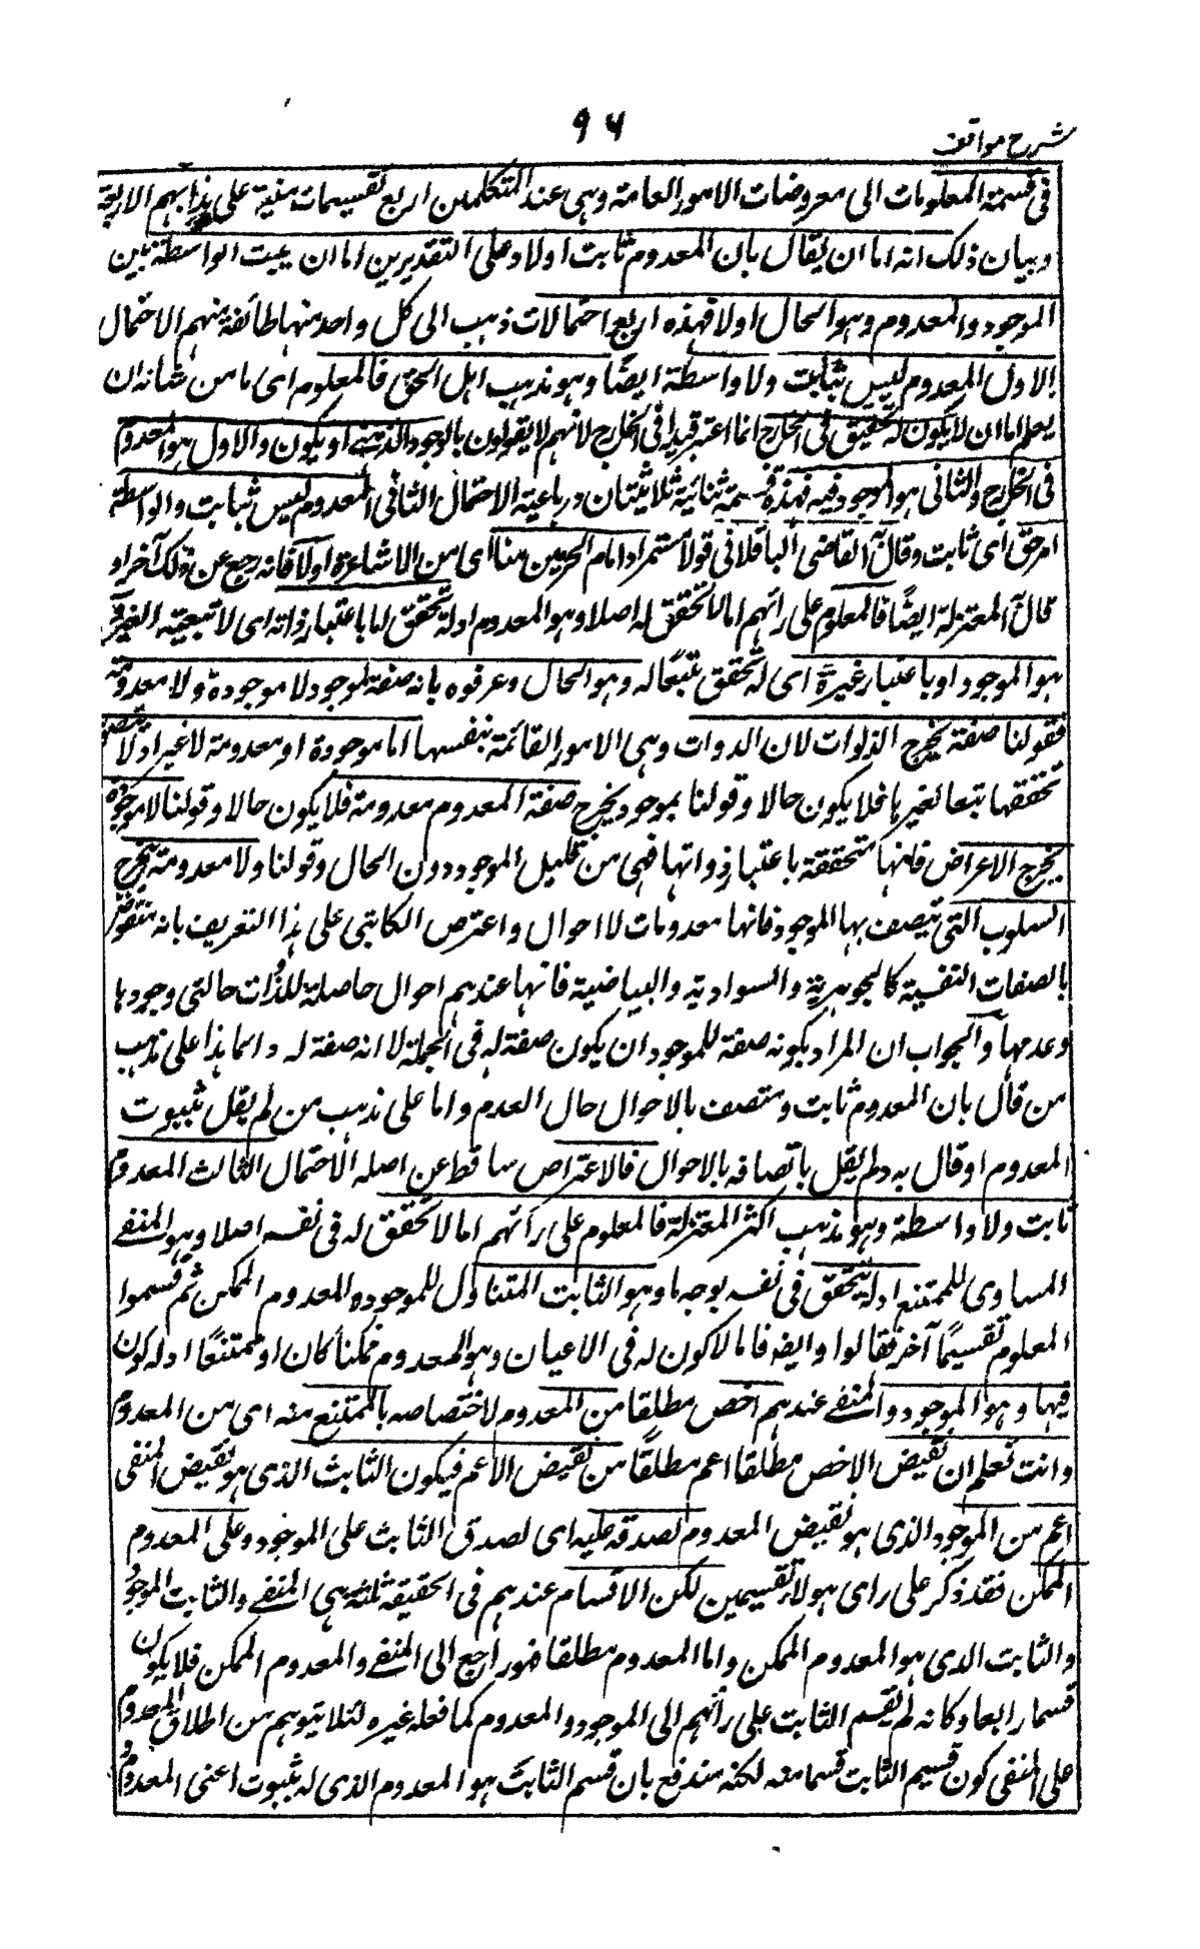 ۹۶
شرح مواقف
فی قسمة المعلومات الی معروضات الامور العامة وہی عند المتکلمین اربع تقسیمات مبنیة علی مذاہبہم الاربعة
وبیان ذلک انہ اما ان یقال بان المعدوم ثابت اولا وعلی التقدیرین اما ان یثبت الواسطة بین
الموجود والمعدوم وہو الحال اولا فہذہ اربع احتمالات ذہب الی کل واحد منہا طائفة منہم الاحتمال
الاول المعدوم لیس بثابت ولا واسطة ایضًا وہو مذہب اہل الحق فالمعلوم ای ما من شانہ ان
یعلم اما ان لا یکون لہ تحقق فی الخارج انما اعتبر قید فی الخارج لانہم لا یقولون بالوجود الذہنی او یکون والاول ہو المعدوم
فی الخارج والثانی ہو الموجود فیہ فہذہ قسمة ثنائیة ثلاثیتان ورباعیة الاحتمال الثانی المعدوم لیس بثابت والواسطة
امر حق ای ثابت وقال القاضی الباقلانی قولا مستمرا وامام الحرمین منا ای من الاشاعرة اولا فانہ رجع عن ذلک آخرا و
قال المعتزلة ایضًا فالمعلوم علی رائہم اما لا تحقق لہ اصلا وہو المعدوم اولہ تحقق اما باعتبار ذاتہ ای لا بتبعیة الغیر و
ہو الموجود او باعتبار غیرہ ای لہ تحقق تبعًا لہ وہو الحال وعرفوہ بانہ صفة لموجود لا موجودة ولا معدومة
فقولنا صفة یخرج الذوات لان الذوات وہی الامور القائمة بنفسہا اما موجودة او معدومة لا غیر اذ لا یتصور
تحققہا تبعا لغیرہا فلا یکون حالا وقولنا بموجود یخرج صفة المعدوم معدومة فلا یکون حالا وقولنا لا موجودة
یخرج الاعراض فانہا متحققة باعتبار ذواتہا فہی من قبیل الموجود دون الحال وقولنا ولا معدومة یخرج
السلوب التی یتصف بہا الموجود فانہا معدومات لا احوال واعترض الکاتبی علی ہذا التعریف بانہ منقوض
بالصفات النفسیة کالجوہریة والسوادیة والبیاضیة فانہا عندہم احوال حاصلة للذوات حالتی وجودہا
وعدمہا والجواب ان المراد بکونہ صفة للموجود ان یکون صفة لہ فی الجملة لا انہ صفة لہ دائما ہذا علی مذہب
من قال بان المعدوم ثابت ومتصف بالاحوال حال العدم واما علی مذہب من لم یقل بثبوت
المعدوم او قال بہ ولم یقل باتصافہ بالاحوال فالاعتراض ساقط عن اصلہ الاحتمال الثالث المعدوم
ثابت ولا واسطة وہو مذہب اکثر المعتزلة فالمعلوم علی رائہم اما لا تحقق لہ فی نفسہ اصلا وہو المنفی
المساوی للممتنع اولہ تحقق فی نفسہ بوجہ ما وہو الثابت المتناول للموجود والمعدوم الممکن ثم قسموا
المعلوم تقسیمًا آخر فقالوا وایضہ فاما لا کون لہ فی الاعیان وہو المعدوم ممکنا کان او ممتنعًا اولہ کون
فیہا وہو الموجود والمنفی عندہم اخص مطلقا من المعدوم لاختصاصہ بالممتنع منہ ای من المعدوم
وانت تعلم ان نقیض الاخص مطلقا اعم مطلقًا من نقیض الاعم فیکون الثابت الذی ہو نقیض المنفی
اعم من الموجود الذی ہو نقیض المعدوم لصدقہ علیہ ای لصدق الثابت علی الموجود وعلی المعدوم
الممکن فقد ذکر علی رای ہولاء تقسیمین لکن الاقسام عندہم فی الحقیقة ثلثة ہی المنفی والثابت الموجود
والثابت الذی ہو المعدوم الممکن واما المعدوم مطلقا فہو راجع الی المنفی والمعدوم الممکن فلا یکون
قسما رابعا وکانہ لم یقسم الثابت علی رائہم الی الموجود والمعدوم کما فعلہ غیرہ لئلا یتوہم من اطلاق المعدوم
علی المنفی کون قسیم الثابت قسما منہ لکنہ مندفع بان قسم الثابت ہو المعدوم الذی لہ ثبوت اعنی المعدوم